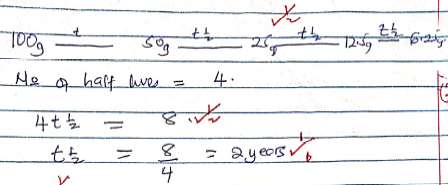 ½
100g —t— 50g —t½— 25g —t½— 12.5g —t½— 6.25g
No of half lives = 4.
4t½ = 8. ½
t½ = 8/4 = 2 years